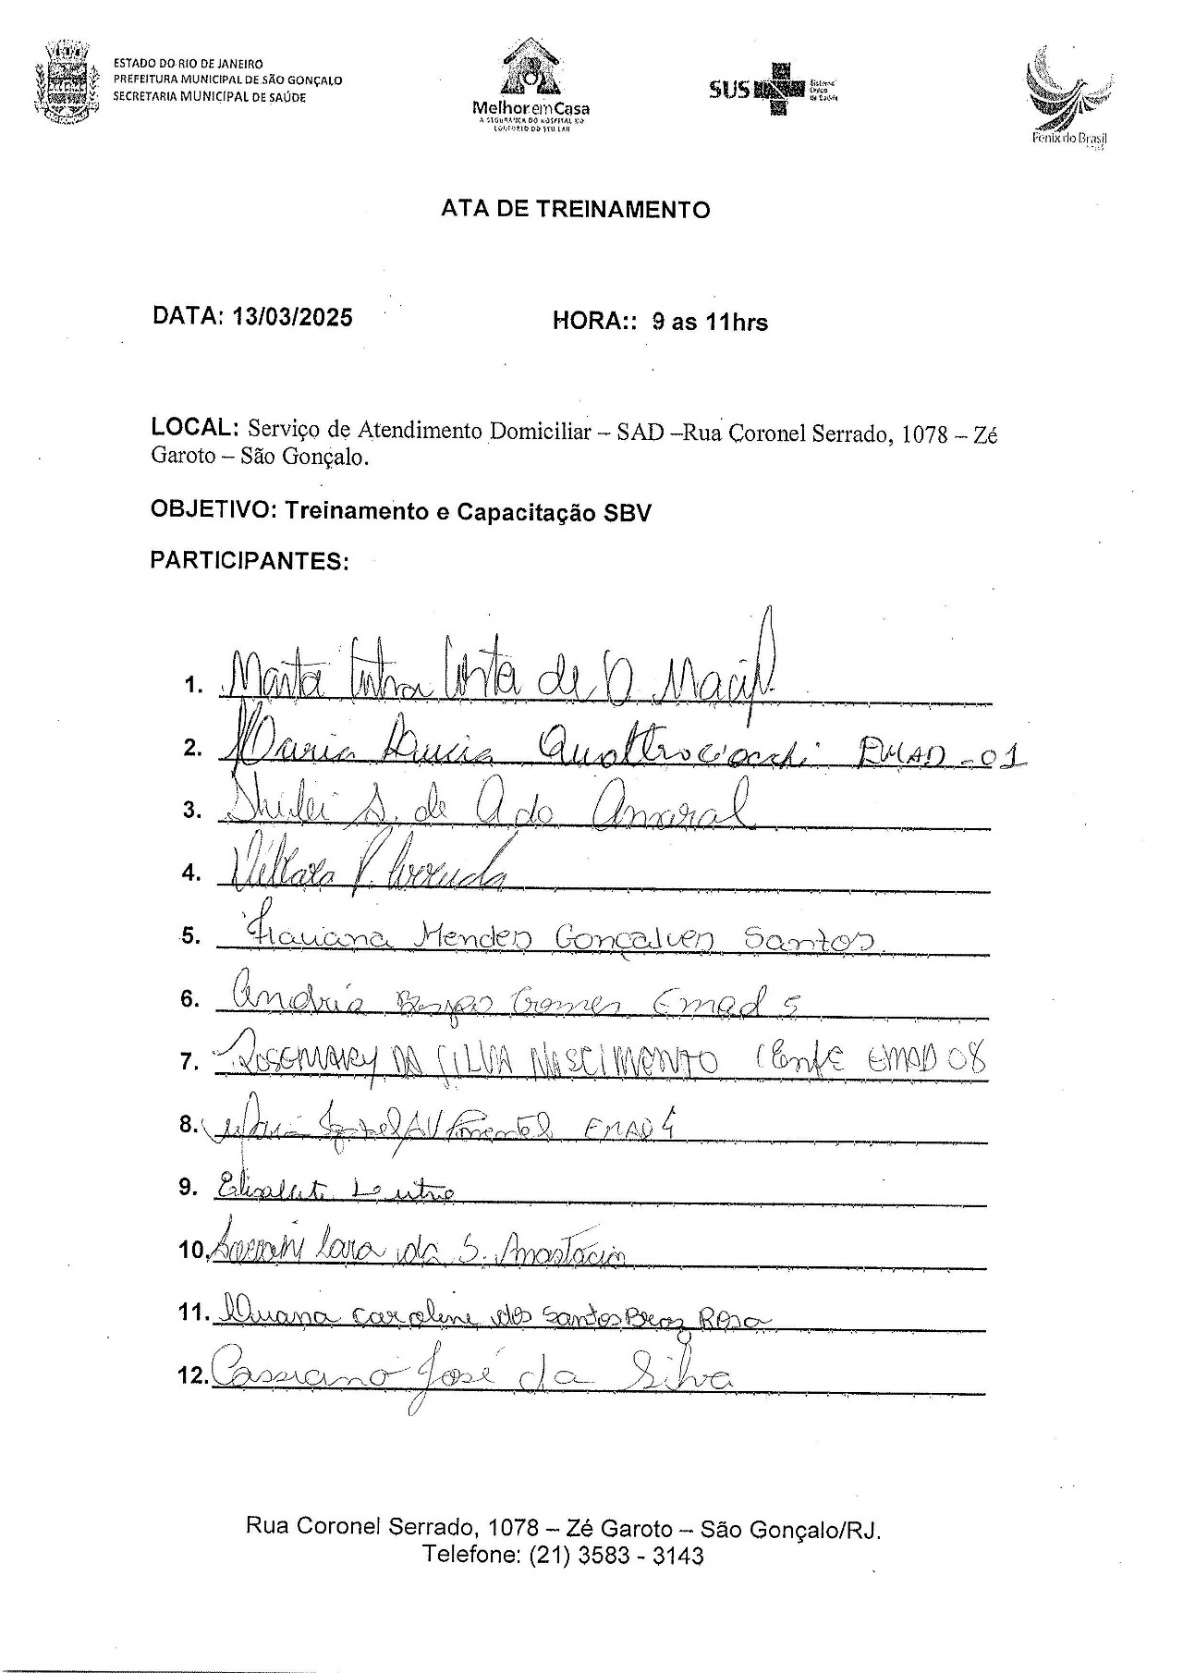 ESTADO DO RIO DE JANEIRO
PREFEITURA MUNICIPAL DE SÃO GONÇALO
SECRETARIA MUNICIPAL DE SAÚDE
MelhoremCasa
A SEGURANÇA DO HOSPITAL NO
CONFORTO DO SEU LAR
SUS
Sistema
Único
de Saúde
Fenix do Brasil
ATA DE TREINAMENTO
DATA: 13/03/2025 HORA:: 9 as 11hrs
LOCAL: Serviço de Atendimento Domiciliar – SAD –Rua Coronel Serrado, 1078 – Zé
Garoto – São Gonçalo.
OBJETIVO: Treinamento e Capacitação SBV
PARTICIPANTES:
1. Marta Cintra Costa de O Macif
2. Maria Lucia Quattrociocchi EMAD -01
3. Shirlei S. de A do Amaral
4. P. Arruda
5. Mendes Gonçalves Santos
6. Gomes Emad 5
7. ROSEMARY DA SILVA NASCIMENTO EMAD 08
8. Maria Pimentel EMAD 4
9. Elizabete
10. Lara da S. Anastácio
11. Caroline dos Santos Braz Rosa
12. Cassiano José da Silva
Rua Coronel Serrado, 1078 – Zé Garoto – São Gonçalo/RJ.
Telefone: (21) 3583 - 3143